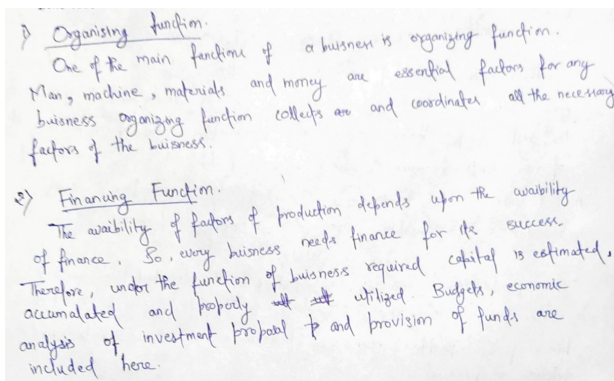 1) Organising function.
One of the main functions of a buisness is organizing function.
Man, machine, materials and money are essential factors for any
buisness organizing function collects and coordinates all the necessary
factors of the buisness.
2) Financing Function.
The avaibility of factors of production depends upon the avaibility
of finance. So, every buisness needs finance for its success.
Therefore, under the function of buisness required capital is estimated,
accumalated and properly utilized. Budgets, economic
analysis of investment proposal and provision of funds are
included here.